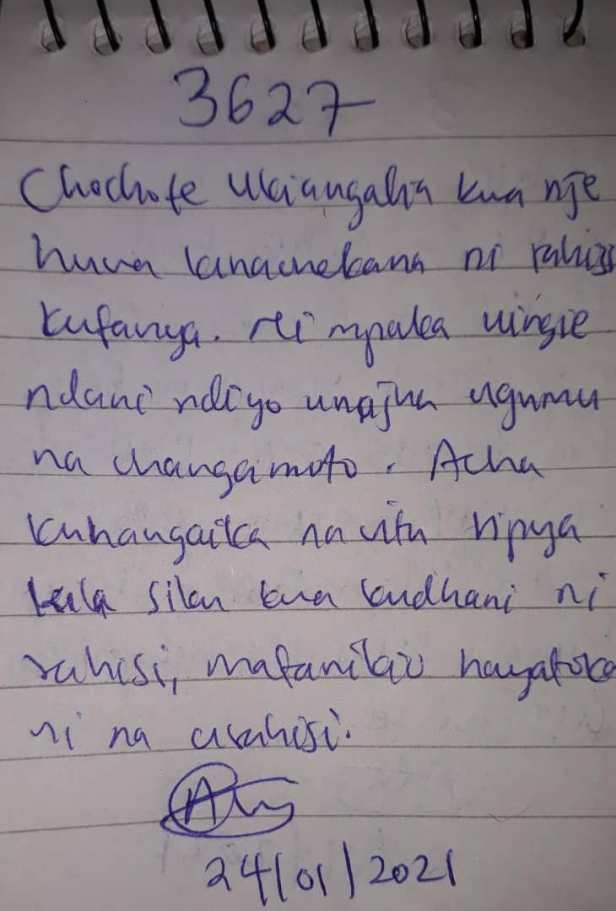 3627
Chochote ukiangalia kwa nje
huwa kinaonekana ni rahisi
kufanya. Ni mpaka uingie
ndani ndiyo unajua ugumu
na changamoto. Acha
kuhangaika na vitu vipya
kila siku kwa kudhani ni
rahisi, mafanikio hayatoka
ni na urahisi.
24/01/2021